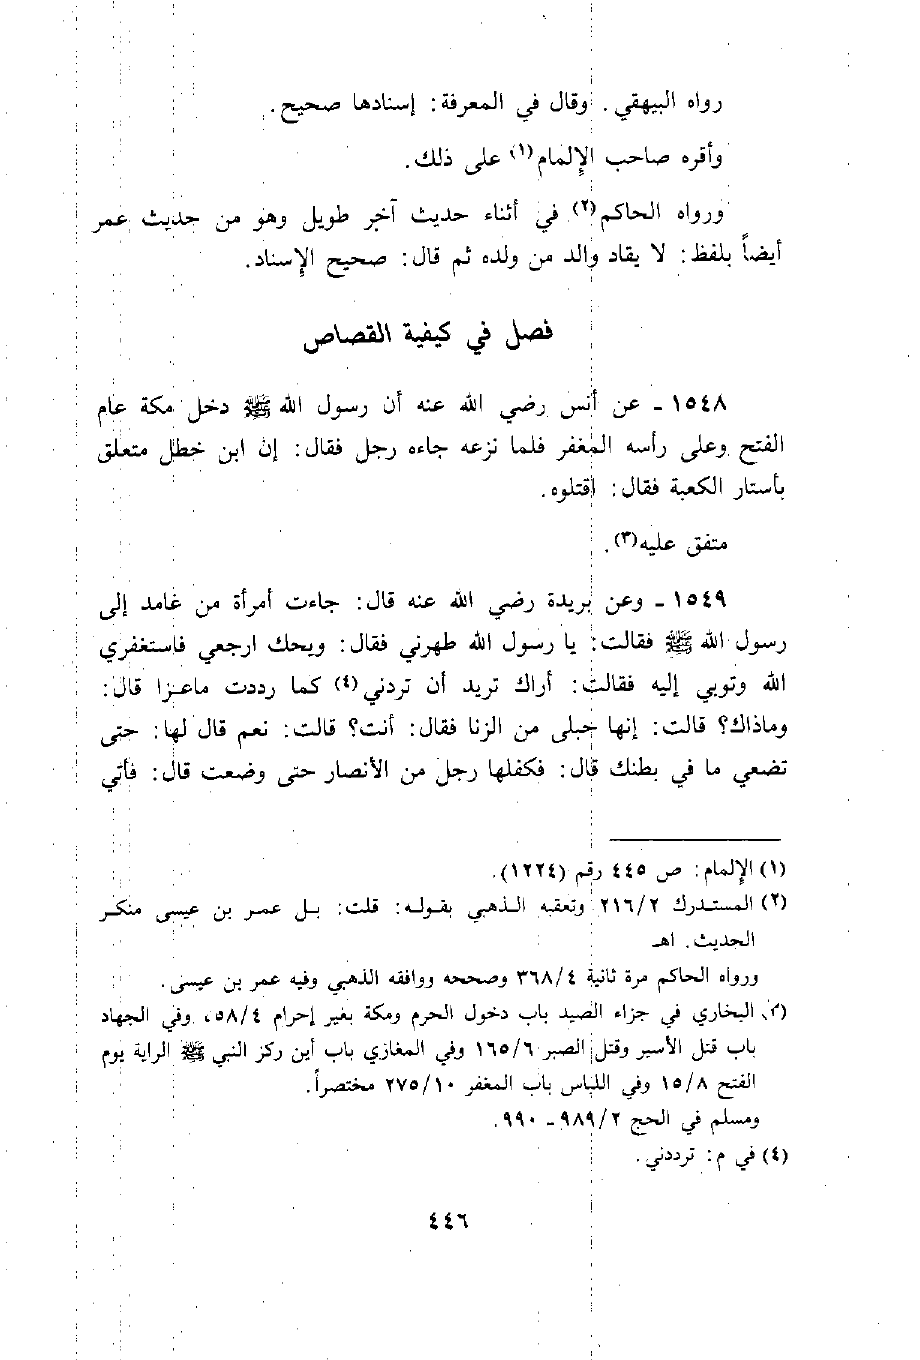 رواه البيهقي. وقال في المعرفة: إسنادها صحيح.
وأقره صاحب الإلمام(١) على ذلك.
ورواه الحاكم(٢) في أثناء حديث آخر طويل وهو من حديث عمر
أيضاً بلفظ: لا يقاد والد من ولده ثم قال: صحيح الإسناد.
فصل في كيفية القصاص
١٥٤٨ - عن أنس رضي الله عنه أن رسول الله ﷺ دخل مكة عام
الفتح وعلى رأسه المغفر فلما نزعه جاءه رجل فقال: إن ابن خطل متعلق
بأستار الكعبة فقال: اقتلوه.
متفق عليه(٣).
١٥٤٩ - وعن بريدة رضي الله عنه قال: جاءت أمرأة من غامد إلى
رسول الله ﷺ فقالت: يا رسول الله طهرني فقال: ويحك ارجعي فاستغفري
الله وتوبي إليه فقالت: أراك تريد أن تردني(٤) كما رددت ماعزا قال:
وماذاك؟ قالت: إنها حبلى من الزنا فقال: أنت؟ قالت: نعم قال لها: حتى
تضعي ما في بطنك قال: فكفلها رجل من الأنصار حتى وضعت قال: فأتي
(١) الإلمام: ص ٤٤٥ رقم (١٢٢٤).
(٢) المستدرك ٢١٦/٢ وتعقبه الذهبي بقوله: قلت: بل عمر بن عيسى منكر
الحديث. اهـ
ورواه الحاكم مرة ثانية ٣٦٨/٤ وصححه ووافقه الذهبي وفيه عمر بن عيسى.
(٣) البخاري في جزاء الصيد باب دخول الحرم ومكة بغير إحرام ٥٨/٤، وفي الجهاد
باب قتل الأسير وقتل الصبر ١٦٥/٦ وفي المغازي باب أين ركز النبي ﷺ الراية يوم
الفتح ١٥/٨ وفي اللباس باب المغفر ٢٧٥/١٠ مختصراً.
ومسلم في الحج ٩٨٩/٢ - ٩٩٠.
(٤) في م: ترددني.
٤٤٦